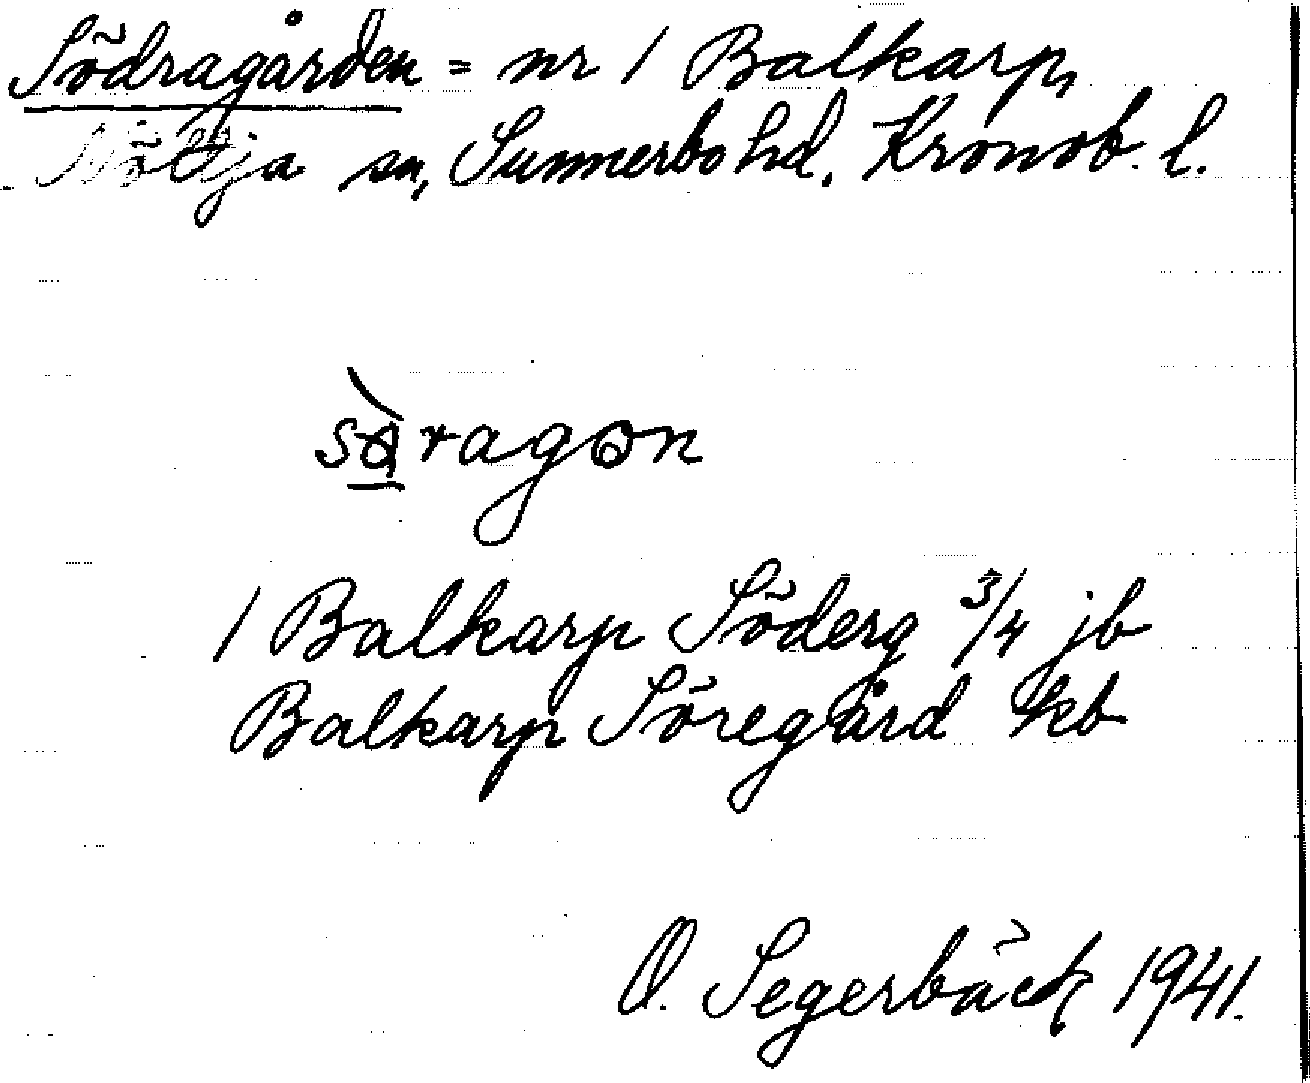 Södragården = nr 1 Balkarp,
Nöttja sn, Sunnerbo hd, Kronob. l.
1 Balkarp Söderg 3/4 jb
Balkarp Söregård kb
O. Segerbäck 1941.